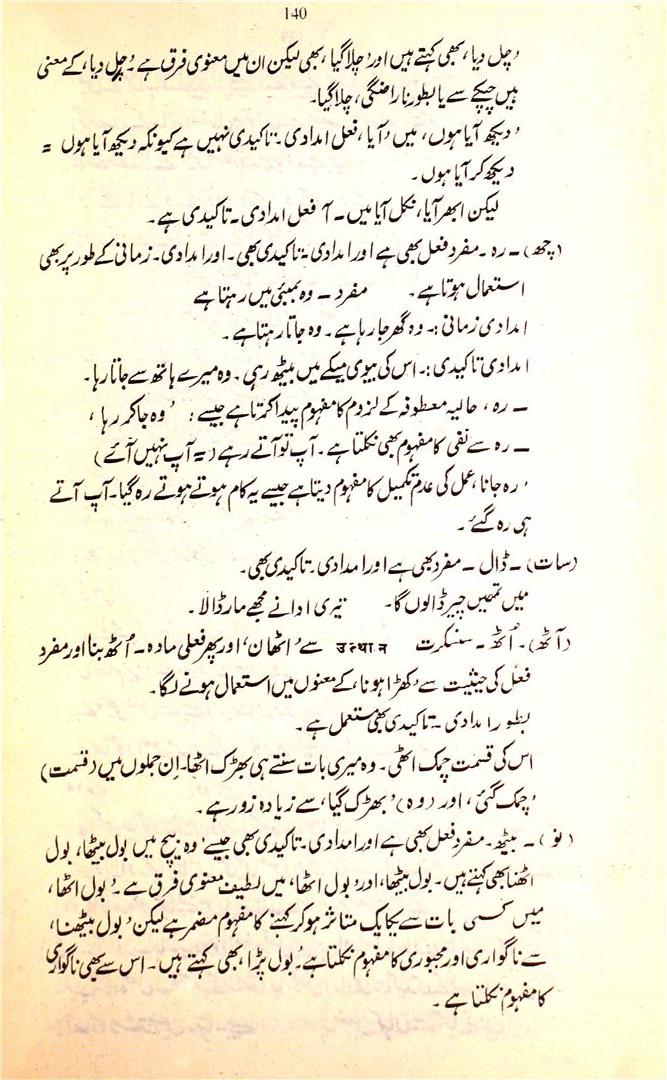 140
'چل دیا، بھی کہتے ہیں اور 'چلا گیا، بھی لیکن ان میں معنوی فرق ہے۔ 'چل دیا، کے معنی
ہیں چپکے سے یا بطور ناراضگی، چلا گیا۔
'دیکھ آیا ہوں، میں 'آیا، فعل امدادی۔ تاکیدی نہیں ہے کیونکہ دیکھ آیا ہوں =
دیکھ کر آیا ہوں۔
لیکن ابھر آیا، نکل آیا میں۔ آ فعل امدادی۔ تاکیدی ہے۔
(چھ)۔ رہ۔ مفرد فعل بھی ہے اور امدادی۔ تاکیدی بھی۔ اور امدادی۔ زمانی کے طور پر بھی
استعمال ہوتا ہے۔ مفرد۔ وہ بمبئی میں رہتا ہے
امدادی زمانی :۔ وہ گھر جا رہا ہے۔ وہ جاتا رہتا ہے۔
امدادی تاکیدی :۔ اس کی بیوی میکے میں بیٹھ رہی۔ وہ میرے ہاتھ سے جاتا رہا۔
۔ رہ، حالیہ معطوفہ کے لزوم کا مفہوم پیدا کرتا ہے جیسے : 'وہ جا کر رہا،
۔ رہ سے نفی کا مفہوم بھی نکلتا ہے۔ آپ تو آتے رہے (= آپ نہیں آئے)
'رہ جانا، عمل کی عدم تکمیل کا مفہوم دیتا ہے جیسے یہ کام ہوتے ہوتے رہ گیا۔ آپ آتے
ہی رہ گئے۔
(سات)۔ ڈال۔ مفرد بھی ہے اور امدادی۔ تاکیدی بھی۔
میں تمھیں چیر ڈالوں گا۔ تیری ادا نے مجھے مار ڈالا۔
(آٹھ)۔ اُٹھ۔ سنسکرت उत्थान سے 'اٹھان، اور پھر فعلی مادہ۔ اُٹھ بنا اور مفرد
فعل کی حیثیت سے 'کھڑا ہونا، کے معنوں میں استعمال ہونے لگا۔
بطور امدادی۔ تاکیدی بھی مستعمل ہے۔
اس کی قسمت چمک اٹھی۔ وہ میری بات سنتے ہی بھڑک اٹھا۔ اِن جملوں میں (قسمت)
'چمک گئی، اور (وہ) 'بھڑک گیا، سے زیادہ زور ہے۔
(نو)۔ بیٹھ۔ مفرد فعل بھی ہے اور امدادی۔ تاکیدی بھی جیسے 'وہ بیچ میں بول بیٹھا، بول
اٹھنا بھی کہتے ہیں۔ بول بیٹھا، اور 'بول اٹھا، میں لطیف معنوی فرق ہے۔ 'بول اٹھا،
میں کسی بات سے یکایک متاثر ہو کر کہنے کا مفہوم مضمر ہے لیکن 'بول بیٹھنا،
سے ناگواری اور مجبوری کا مفہوم نکلتا ہے۔ 'بول پڑا، بھی کہتے ہیں۔ اس سے بھی ناگواری
کا مفہوم نکلتا ہے۔